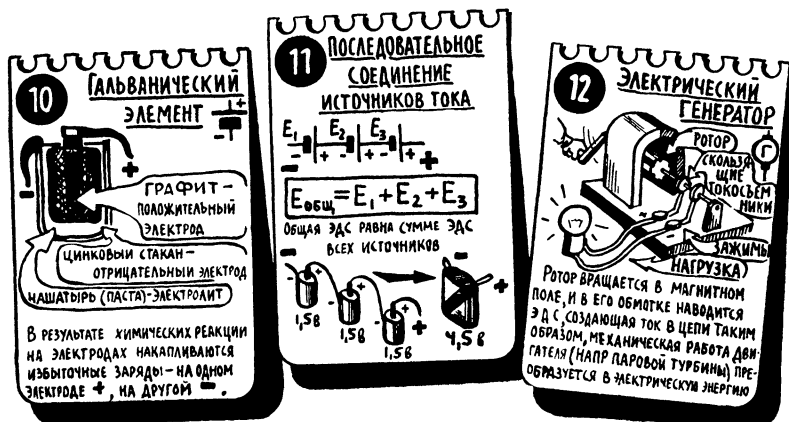 10
ГАЛЬВАНИЧЕСКИЙ
ЭЛЕМЕНТ
+
-
-
+
ГРАФИТ-
ПОЛОЖИТЕЛЬНЫЙ
ЭЛЕКТРОД
ЦИНКОВЫЙ СТАКАН-
ОТРИЦАТЕЛЬНЫЙ ЭЛЕКТРОД
НАШАТЫРЬ (ПАСТА)-ЭЛЕКТРОЛИТ
В РЕЗУЛЬТАТЕ ХИМИЧЕСКИХ РЕАКЦИЙ
НА ЭЛЕКТРОДАХ НАКАПЛИВАЮТСЯ
ИЗБЫТОЧНЫЕ ЗАРЯДЫ-НА ОДНОМ
ЭЛЕКТРОДЕ +, НА ДРУГОЙ -.
11
ПОСЛЕДОВАТЕЛЬНОЕ
СОЕДИНЕНИЕ
ИСТОЧНИКОВ ТОКА
E1 E2 E3
- - + - + - + +
EОБЩ=E1+E2+E3
ОБЩАЯ ЭДС РАВНА СУММЕ ЭДС
ВСЕХ ИСТОЧНИКОВ
- + - + - + +
1,5В 1,5В 1,5В
- +
4,5В
12
ЭЛЕКТРИЧЕСКИЙ
ГЕНЕРАТОР
РОТОР
Г
СКОЛЬЗЯ
ЩИЕ
ТОКОСЪЕМ
НИКИ
ЗАЖИМЫ
НАГРУЗКА
РОТОР ВРАЩАЕТСЯ В МАГНИТНОМ
ПОЛЕ, И В ЕГО ОБМОТКЕ НАВОДИТСЯ
ЭДС, СОЗДАЮЩАЯ ТОК В ЦЕПИ ТАКИМ
ОБРАЗОМ, МЕХАНИЧЕСКАЯ РАБОТА ДВИ-
ГАТЕЛЯ (НАПР ПАРОВОЙ ТУРБИНЫ) ПРЕ-
ОБРАЗУЕТСЯ В ЭЛЕКТРИЧЕСКУЮ ЭНЕРГИЮ